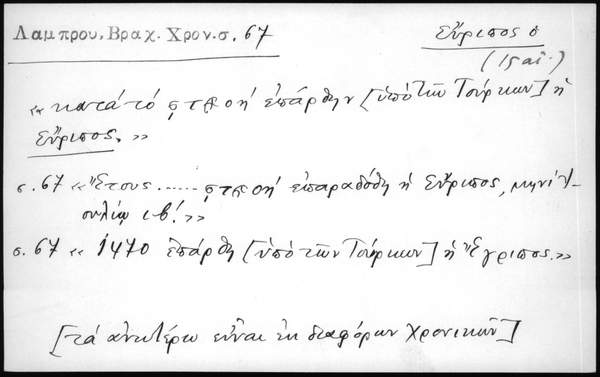 Λαμπρου, Βραχ. Χρον. σ. 67
Εὔριπος ὁ
(15 αἰ.)
«κατὰ τό ϛϡοη΄ ἐπάρθην [ὑπὸ τῶν Τούρκων] ἡ
Εὔριπος.»
σ. 67 «Ἔτους...... ϛϡοη΄ ἐπαραδόθη ἡ Εὔριπος, μηνί Ἰ-
ουλίῳ ιβ΄.»
σ. 67 «1470 ἐπάρθη [ὑπὸ τῶν Τούρκων] ἡ Ἔγριπος.»
[τά ἀνωτέρω εἶναι ἐκ διαφόρων Χρονικῶν]